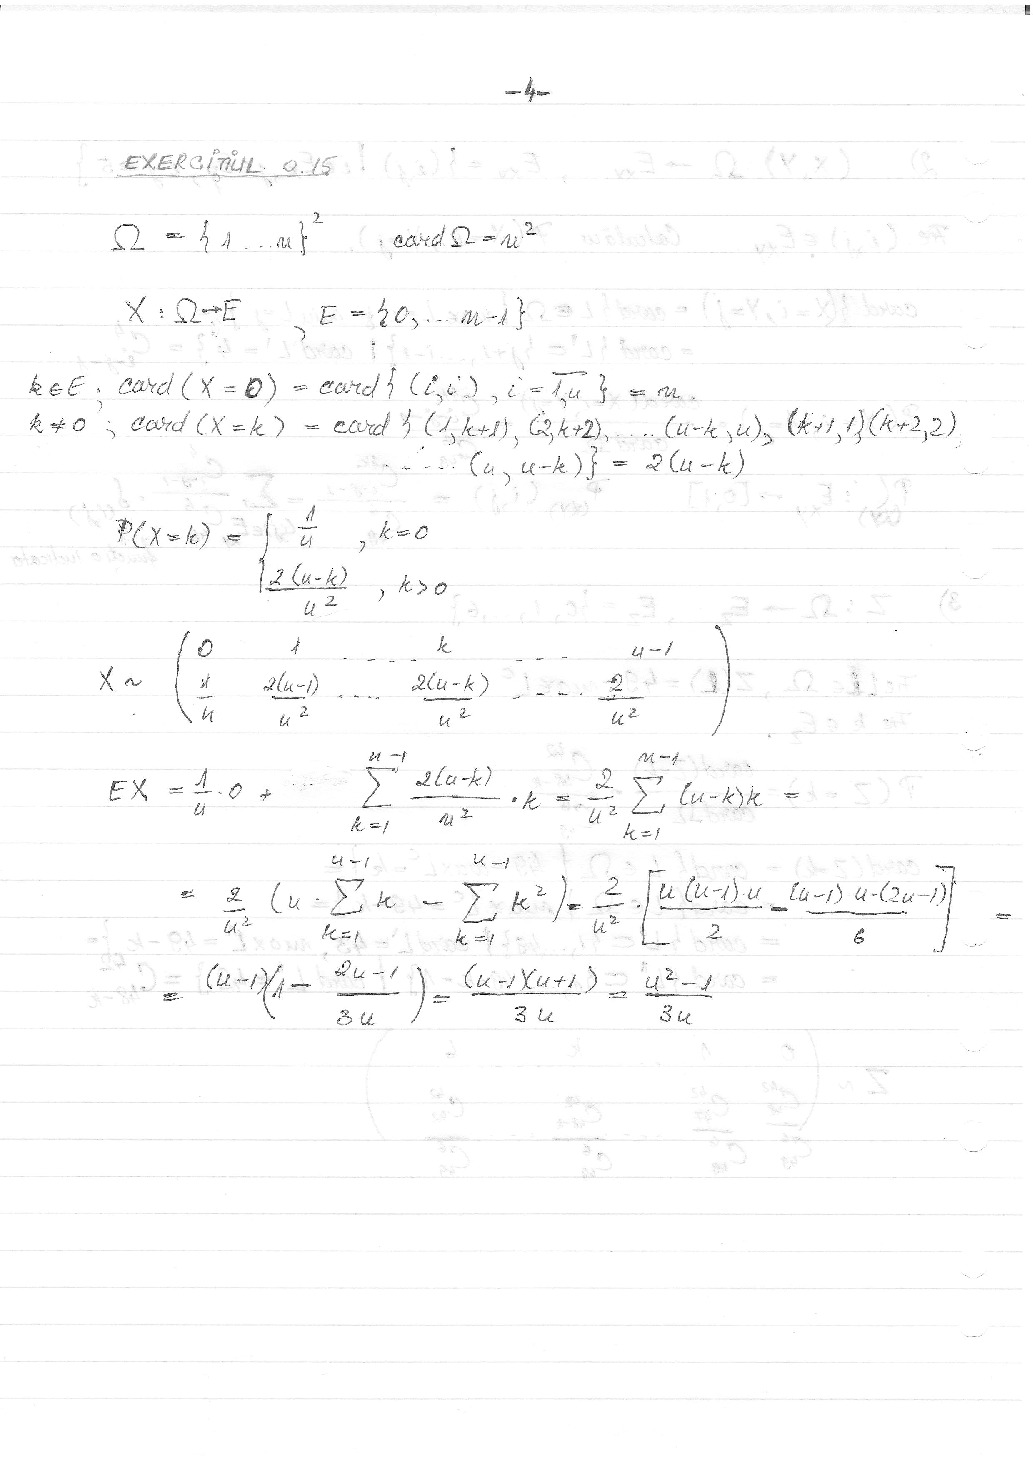 -4-
EXERCIȚIUL 0.15
Ω = {1...n}², card Ω = n²
X : Ω→E , E = {0,...n-1}
k∈E ; card (X=0) = card { (i,i) , i = 1,n } = n.
k≠0 ; card (X=k) = card { (1,k+1), (2,k+2), .... (n-k,n), (k+1,1)(k+2,2)
..... (n, n-k)} = 2(n-k)
P(X=k) = { 1/n , k=0
2(n-k)/n² , k>0
X ~ ( 0 1 .... k .... n-1
1/n 2(n-1)/n² .... 2(n-k)/n² .... 2/n² )
EX = 1/n · 0 + ∑_{k=1}^{n-1} 2(n-k)/n² · k = 2/n² ∑_{k=1}^{n-1} (n-k)k =
= 2/n² (n · ∑_{k=1}^{n-1} k - ∑_{k=1}^{n-1} k²) = 2/n² · [n(n-1)·n/2 - (n-1)·n·(2n-1)/6] =
= (n-1)(1 - 2n-1/3n) = (n-1)(n+1)/3n = n²-1/3n